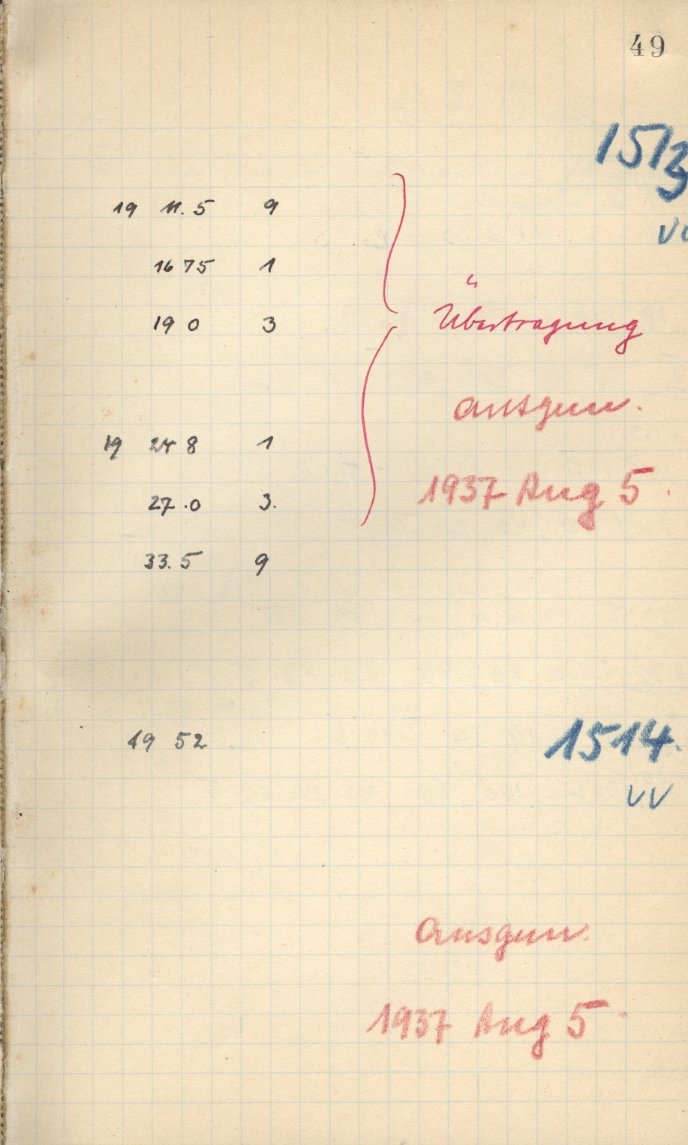 49
1513
VV
19 11.5 9
16 75 1
19 0 3
Übertragung
ausgem.
19 24 8 1
1937 Aug 5.
27.0 3.
33.5 9
19 52
1514.
VV
ausgem.
1937 Aug 5.